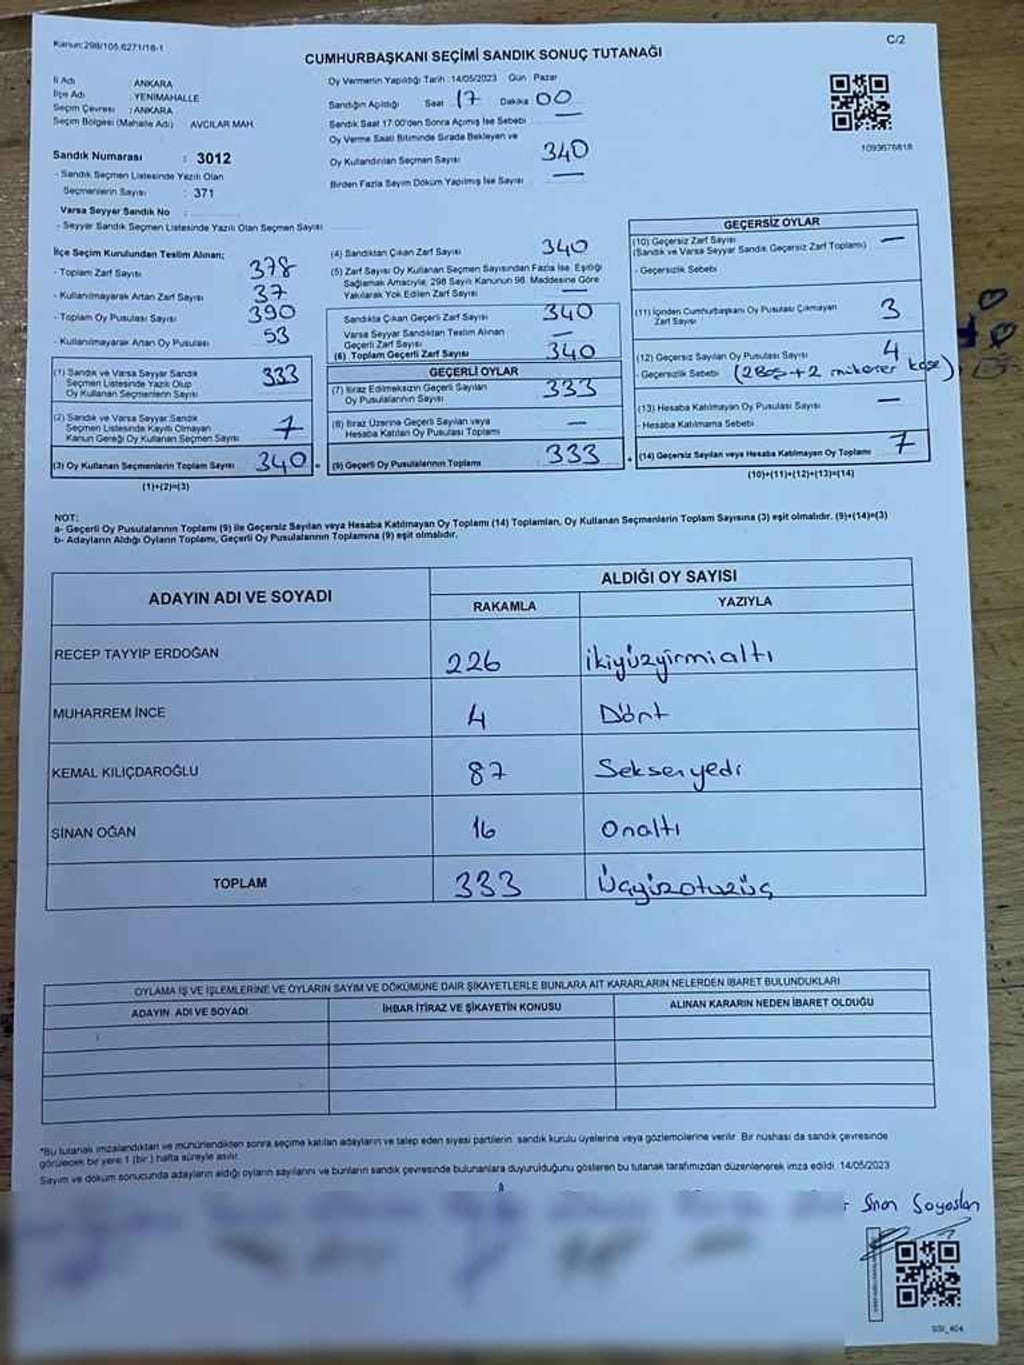 Kanun:298/105,6271/16-1
C/2
CUMHURBAŞKANI SEÇİMİ SANDIK SONUÇ TUTANAĞI
İl Adı ANKARA
İlçe Adı YENİMAHALLE
Seçim Çevresi : ANKARA
Seçim Bölgesi (Mahalle Adı) AVCILAR MAH
Sandık Numarası : 3012
- Sandık Seçmen Listesinde Yazılı Olan
Seçmenlerin Sayısı : 371
Varsa Seyyar Sandık No :
- Seyyar Sandık Seçmen Listesinde Yazılı Olan Seçmen Sayısı
Oy Vermenin Yapıldığı Tarih :14/05/2023 Gün Pazar
Sandığın Açıldığı Saat 17 Dakika 00
Sandık Saat 17:00'den Sonra Açımış İse Sebebi —
Oy Verme Saati Bitiminde Sırada Bekleyen ve
Oy Kullandırılan Seçmen Sayısı 340
Birden Fazla Sayım Döküm Yapılmış İse Sayısı —
1093676818
İlçe Seçim Kurulundan Teslim Alınan;
- Toplam Zarf Sayısı 378
- Kullanılmayarak Artan Zarf Sayısı 37
- Toplam Oy Pusulası Sayısı 390
- Kullanılmayarak Artan Oy Pusulası 53
(1) Sandık ve Varsa Seyyar Sandık
Seçmen Listesinde Yazılı Olup
Oy Kullanan Seçmenlerin Sayısı 333
(2) Sandık ve Varsa Seyyar Sandık
Seçmen Listesinde Kayıtlı Olmayan
Kanun Gereği Oy Kullanan Seçmen Sayısı 7
(3) Oy Kullanan Seçmenlerin Toplam Sayısı 340
(1)+(2)=(3)
(4) Sandıktan Çıkan Zarf Sayısı 340
(5) Zarf Sayısı Oy Kullanan Seçmen Sayısından Fazla İse, Eşitliği
Sağlamak Amacıyla, 298 Sayılı Kanunun 98. Maddesine Göre
Yakılarak Yok Edilen Zarf Sayısı —
Sandıkta Çıkan Geçerli Zarf Sayısı 340
Varsa Seyyar Sandıktan Teslim Alınan
Geçerli Zarf Sayısı —
(6) Toplam Geçerli Zarf Sayısı 340
GEÇERLİ OYLAR
(7) İtiraz Edilmeksizin Geçerli Sayılan
Oy Pusulalarının Sayısı 333
(8) İtiraz Üzerine Geçerli Sayılan veya
Hesaba Katılan Oy Pusulası Toplamı —
(9) Geçerli Oy Pusulalarının Toplamı 333
GEÇERSİZ OYLAR
(10) Geçersiz Zarf Sayısı —
(Sandık ve Varsa Seyyar Sandık Geçersiz Zarf Toplamı)
- Geçersizlik Sebebi
(11) İçinden Cumhurbaşkanı Oy Pusulası Çıkmayan
Zarf Sayısı 3
(12) Geçersiz Sayılan Oy Pusulası Sayısı 4
- Geçersizlik Sebebi (2 Boş + 2 mükerer kaşe)
(13) Hesaba Katılmayan Oy Pusulası Sayısı —
- Hesaba Katılmama Sebebi
(14) Geçersiz Sayılan veya Hesaba Katılmayan Oy Toplamı 7
(10)+(11)+(12)+(13)=(14)
NOT:
a- Geçerli Oy Pusulalarının Toplamı (9) ile Geçersiz Sayılan veya Hesaba Katılmayan Oy Toplamı (14) Toplamları, Oy Kullanan Seçmenlerin Toplam Sayısına (3) eşit olmalıdır. (9)+(14)=(3)
b- Adayların Aldığı Oyların Toplamı, Geçerli Oy Pusulalarının Toplamına (9) eşit olmalıdır.
ADAYIN ADI VE SOYADI
ALDIĞI OY SAYISI
RAKAMLA YAZIYLA
RECEP TAYYİP ERDOĞAN 226 ikiyüzyirmialtı
MUHARREM İNCE 4 Dört
KEMAL KILIÇDAROĞLU 87 Seksenyedi
SİNAN OĞAN 16 Onaltı
TOPLAM 333 Üçyüzotuzüç
OYLAMA İŞ VE İŞLEMLERİNE VE OYLARIN SAYIM VE DÖKÜMÜNE DAİR ŞİKAYETLERLE BUNLARA AİT KARARLARIN NELERDEN İBARET BULUNDUKLARI
ADAYIN ADI VE SOYADI İHBAR İTİRAZ VE ŞİKAYETİN KONUSU ALINAN KARARIN NEDEN İBARET OLDUĞU
*Bu tutanak imzalandıktan ve mühürlendikten sonra seçime katılan adayların ve talep eden siyasi partilerin sandık kurulu üyelerine veya gözlemcilerine verilir. Bir nüshası da sandık çevresinde
görülecek bir yere 1 (bir ) hafta süreyle asılır.
Sayım ve döküm sonucunda adayların aldığı oyların sayılarını ve bunların sandık çevresinde bulunanlara duyurulduğunu gösteren bu tutanak tarafımızdan düzenlenerek imza edildi. 14/05/2023
Sinan Soyaslan
SSI_404